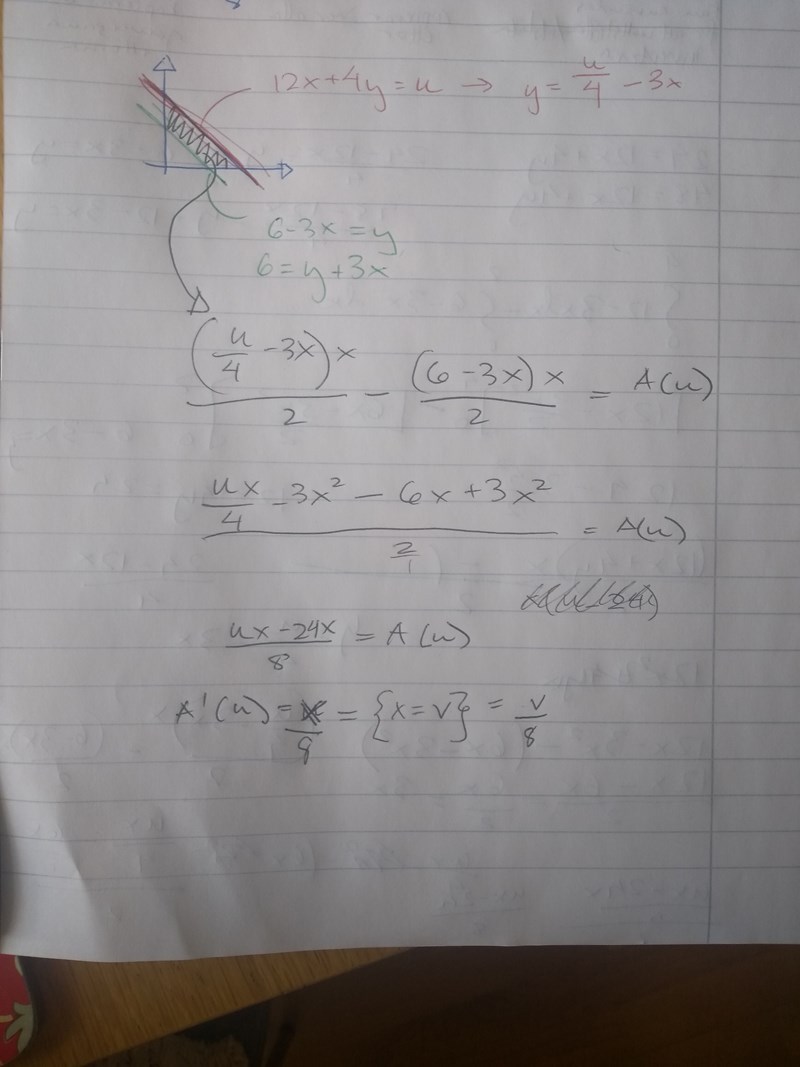 12x+4y=u → y = u/4 - 3x
6-3x=y
6=y+3x
(u/4 - 3x)x/2 - (6-3x)x/2 = A(u)
(ux/4 - 3x² - 6x + 3x²)/(2/1) = A(u)
(ux-24x)/8 = A(u)
A'(u) = x/8 = {x=v} = v/8